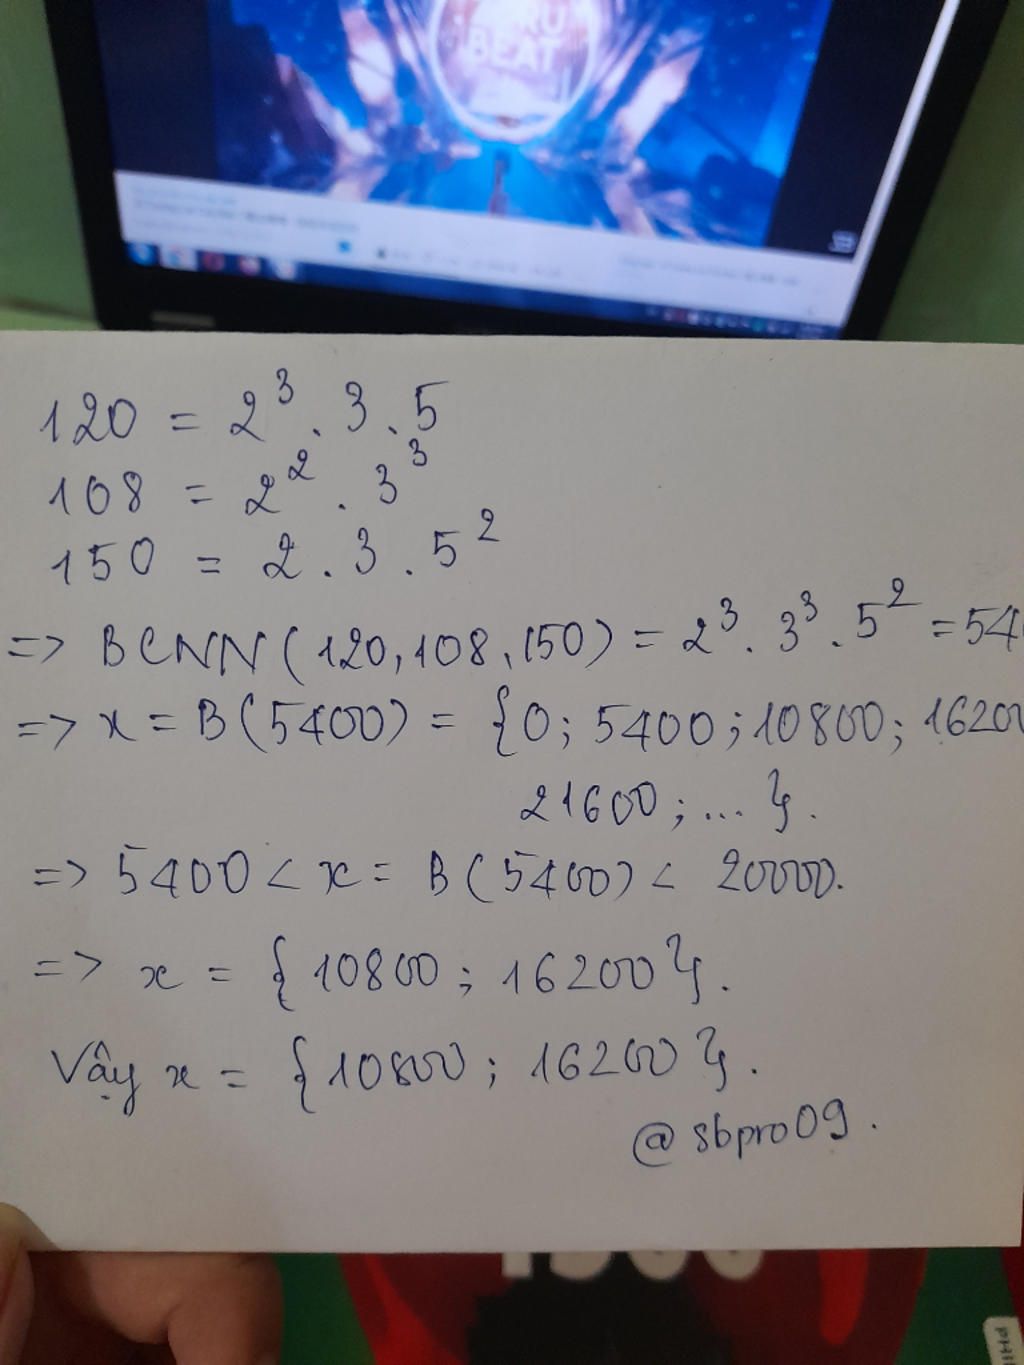 BEAT
120 = 2³ . 3 . 5
108 = 2² . 3³
150 = 2 . 3 . 5²
=> BCNN(120,108,150) = 2³ . 3³ . 5² = 540
=> x = B(5400) = {0; 5400; 10800; 16200
21600; ... }.
=> 5400 < x = B(5400) < 20000.
=> x = {10800; 16200}.
Vậy x = {10800; 16200}.
@sbpro09.